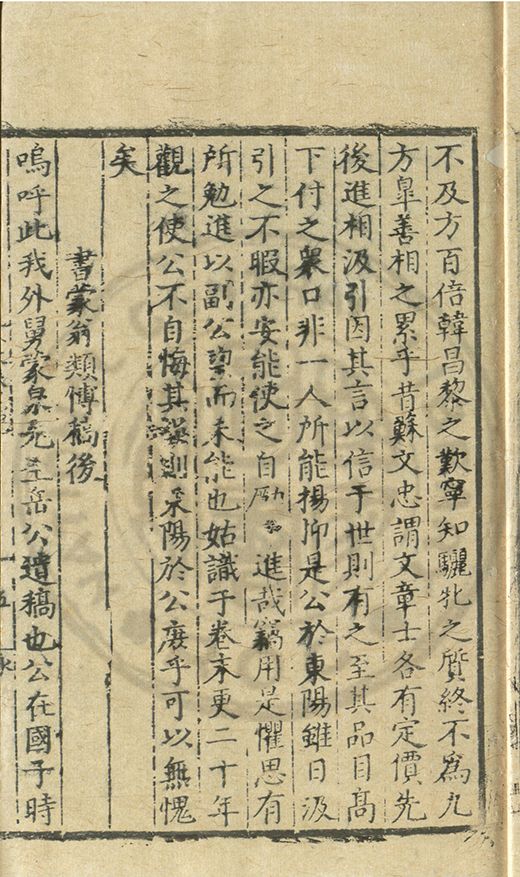 不及方百倍韓昌黎之歎寧知驪牝之質終不為九
方臯善相之累乎昔蘇文忠謂文章士各有定價先
後進相汲引因其言以信于世則有之至其品目高
下付之衆口非一人所能揚抑是公於東陽雖日汲
引之不暇亦安能使之自進哉竊用是懼思有
所勉進以副公望而未能也姑識于卷末更二十年
觀之使公不自悔其誤則東陽於公庶乎可以無愧
矣
書蒙翁類博稿後
嗚呼此我外舅蒙泉先生岳公遺稿也公在國子時